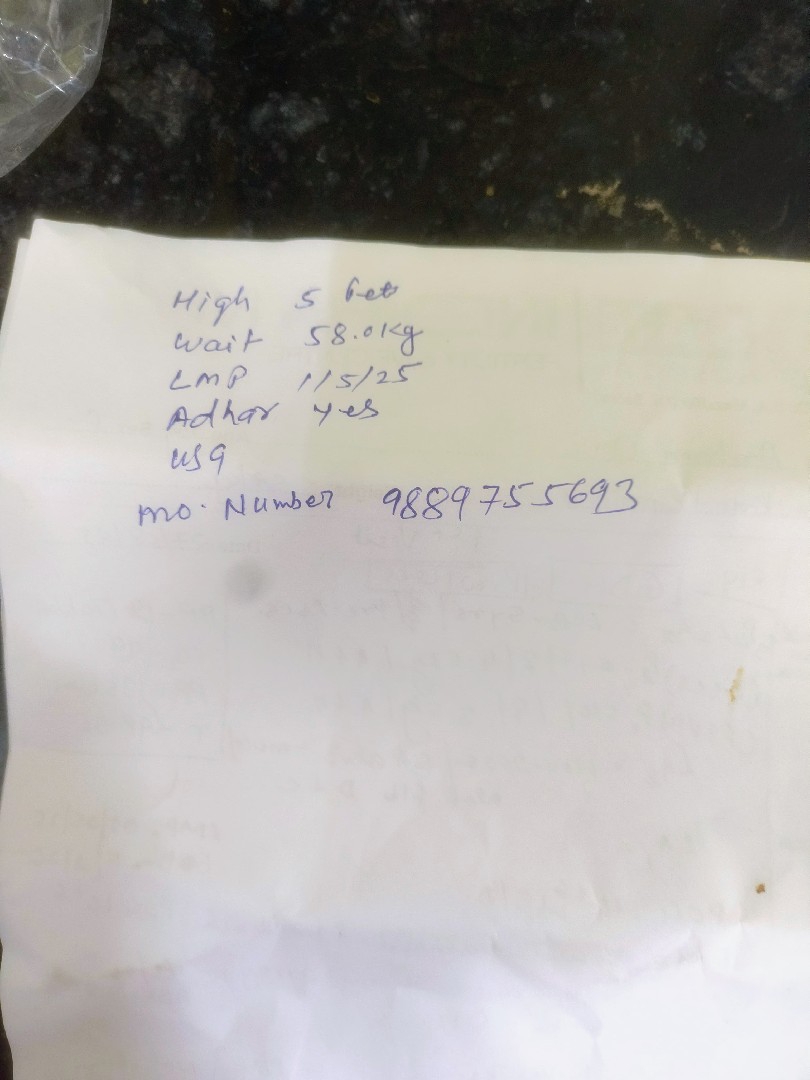 High 5 feet
wait 58.0kg
LMP 1/5/25
Adhar yes
USG
mo. Number 9889755693